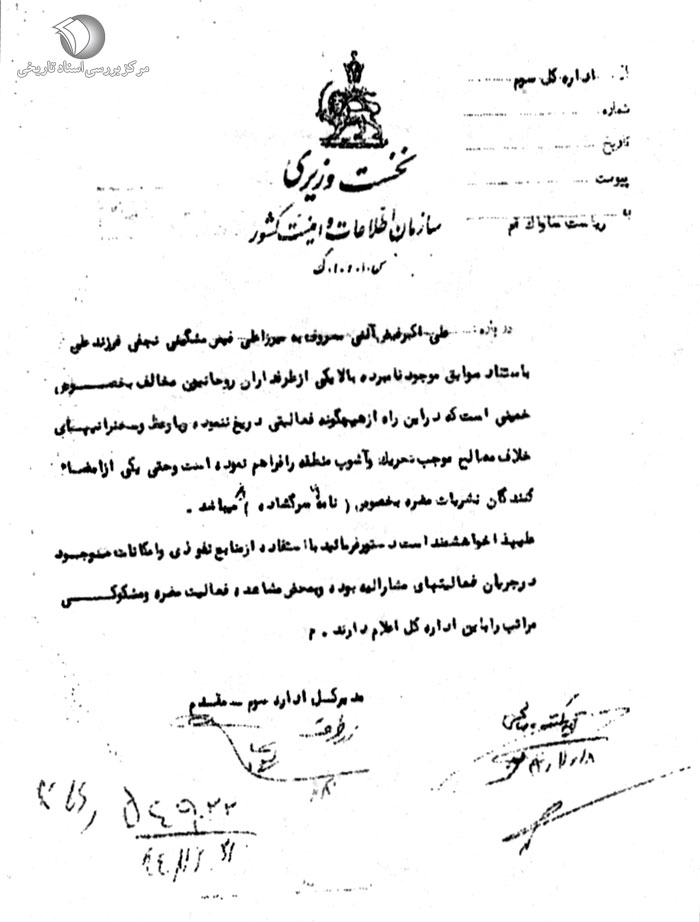 مرکز بررسی اسناد تاریخی
از اداره کل سوم
شماره
تاریخ
پیوست
به ریاست ساواک قم
نخست وزیری
سازمان اطلاعات و امنیت کشور
س.ا.و.ا.ک
درباره علی اکبر فیض آلنی معروف به میرزاعلی فیض مشگینی نجفی فرزند علی
باستناد سوابق موجود نامبرده بالا یکی از طرفداران روحانیون مخالف بخصوص
خمینی است که در این راه از هیچگونه فعالیتی دریغ ننموده و با وعظ و سخنرانیهای
خلاف مصالح موجب تحریک و آشوب منطقه را فراهم نموده است و حتی یکی از امضاء
کنندگان نشریات مضره بخصوص ( نامه سرگشاده ) میباشد .
علیهذا خواهشمند است دستور فرمائید با استفاده از منابع نفوذی و امکانات موجود
در جریان فعالیتهای مشارالیه بوده و بمحض مشاهده فعالیت مضره و مشکوک
مراتب را باین اداره کل اعلام دارند . م
مدیرکل اداره سوم - مقدم